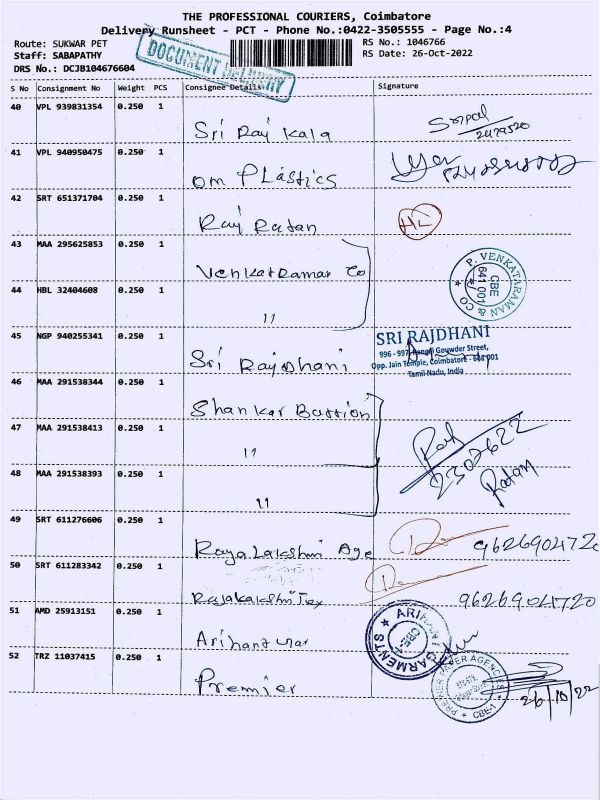 THE PROFESSIONAL COURIERS, Coimbatore
Delivery Runsheet - PCT - Phone No.:0422-3505555 - Page No.:4
Route: SUKWAR PET
RS No.: 1046766
Staff: SABAPATHY
RS Date: 26-Oct-2022
DRS No.: DCJB104676604
DOCUMENT DELIVERY
S No Consignment No Weight PCS Consignee Details Signature
40 VPL 939831354 0.250 1
Sri Raj Kala
Sripal
2479520
41 VPL 940950475 0.250 1
om Plastics
42 SRT 651371704 0.250 1
Raj Ratan
43 MAA 295625853 0.250 1
Venkatraman Co
P. VENKATARAMAN & CO
CBE
641 001
44 HBL 32404608 0.250 1
11
45 NGP 940255341 0.250 1
Sri Rajdhani
SRI RAJDHANI
996 - 997, Rangai Gowder Street,
Opp. Jain Temple, Coimbatore - 641 001
Tamil Nadu, India
46 MAA 291538344 0.250 1
Shankar Buttion
47 MAA 291538413 0.250 1
11
2307622
Ratan
48 MAA 291538393 0.250 1
11
49 SRT 611276606 0.250 1
Raja Lakshmi Age
9626904720
50 SRT 611283342 0.250 1
Rajalakshmi Tex
9626904720
51 AMD 25913151 0.250 1
Arihant
ARIHANT GARMENTS
CBE-1
52 TRZ 11037415 0.250 1
Premier
PREMIER PAPER AGENCIES
CBE-1
26/10/22